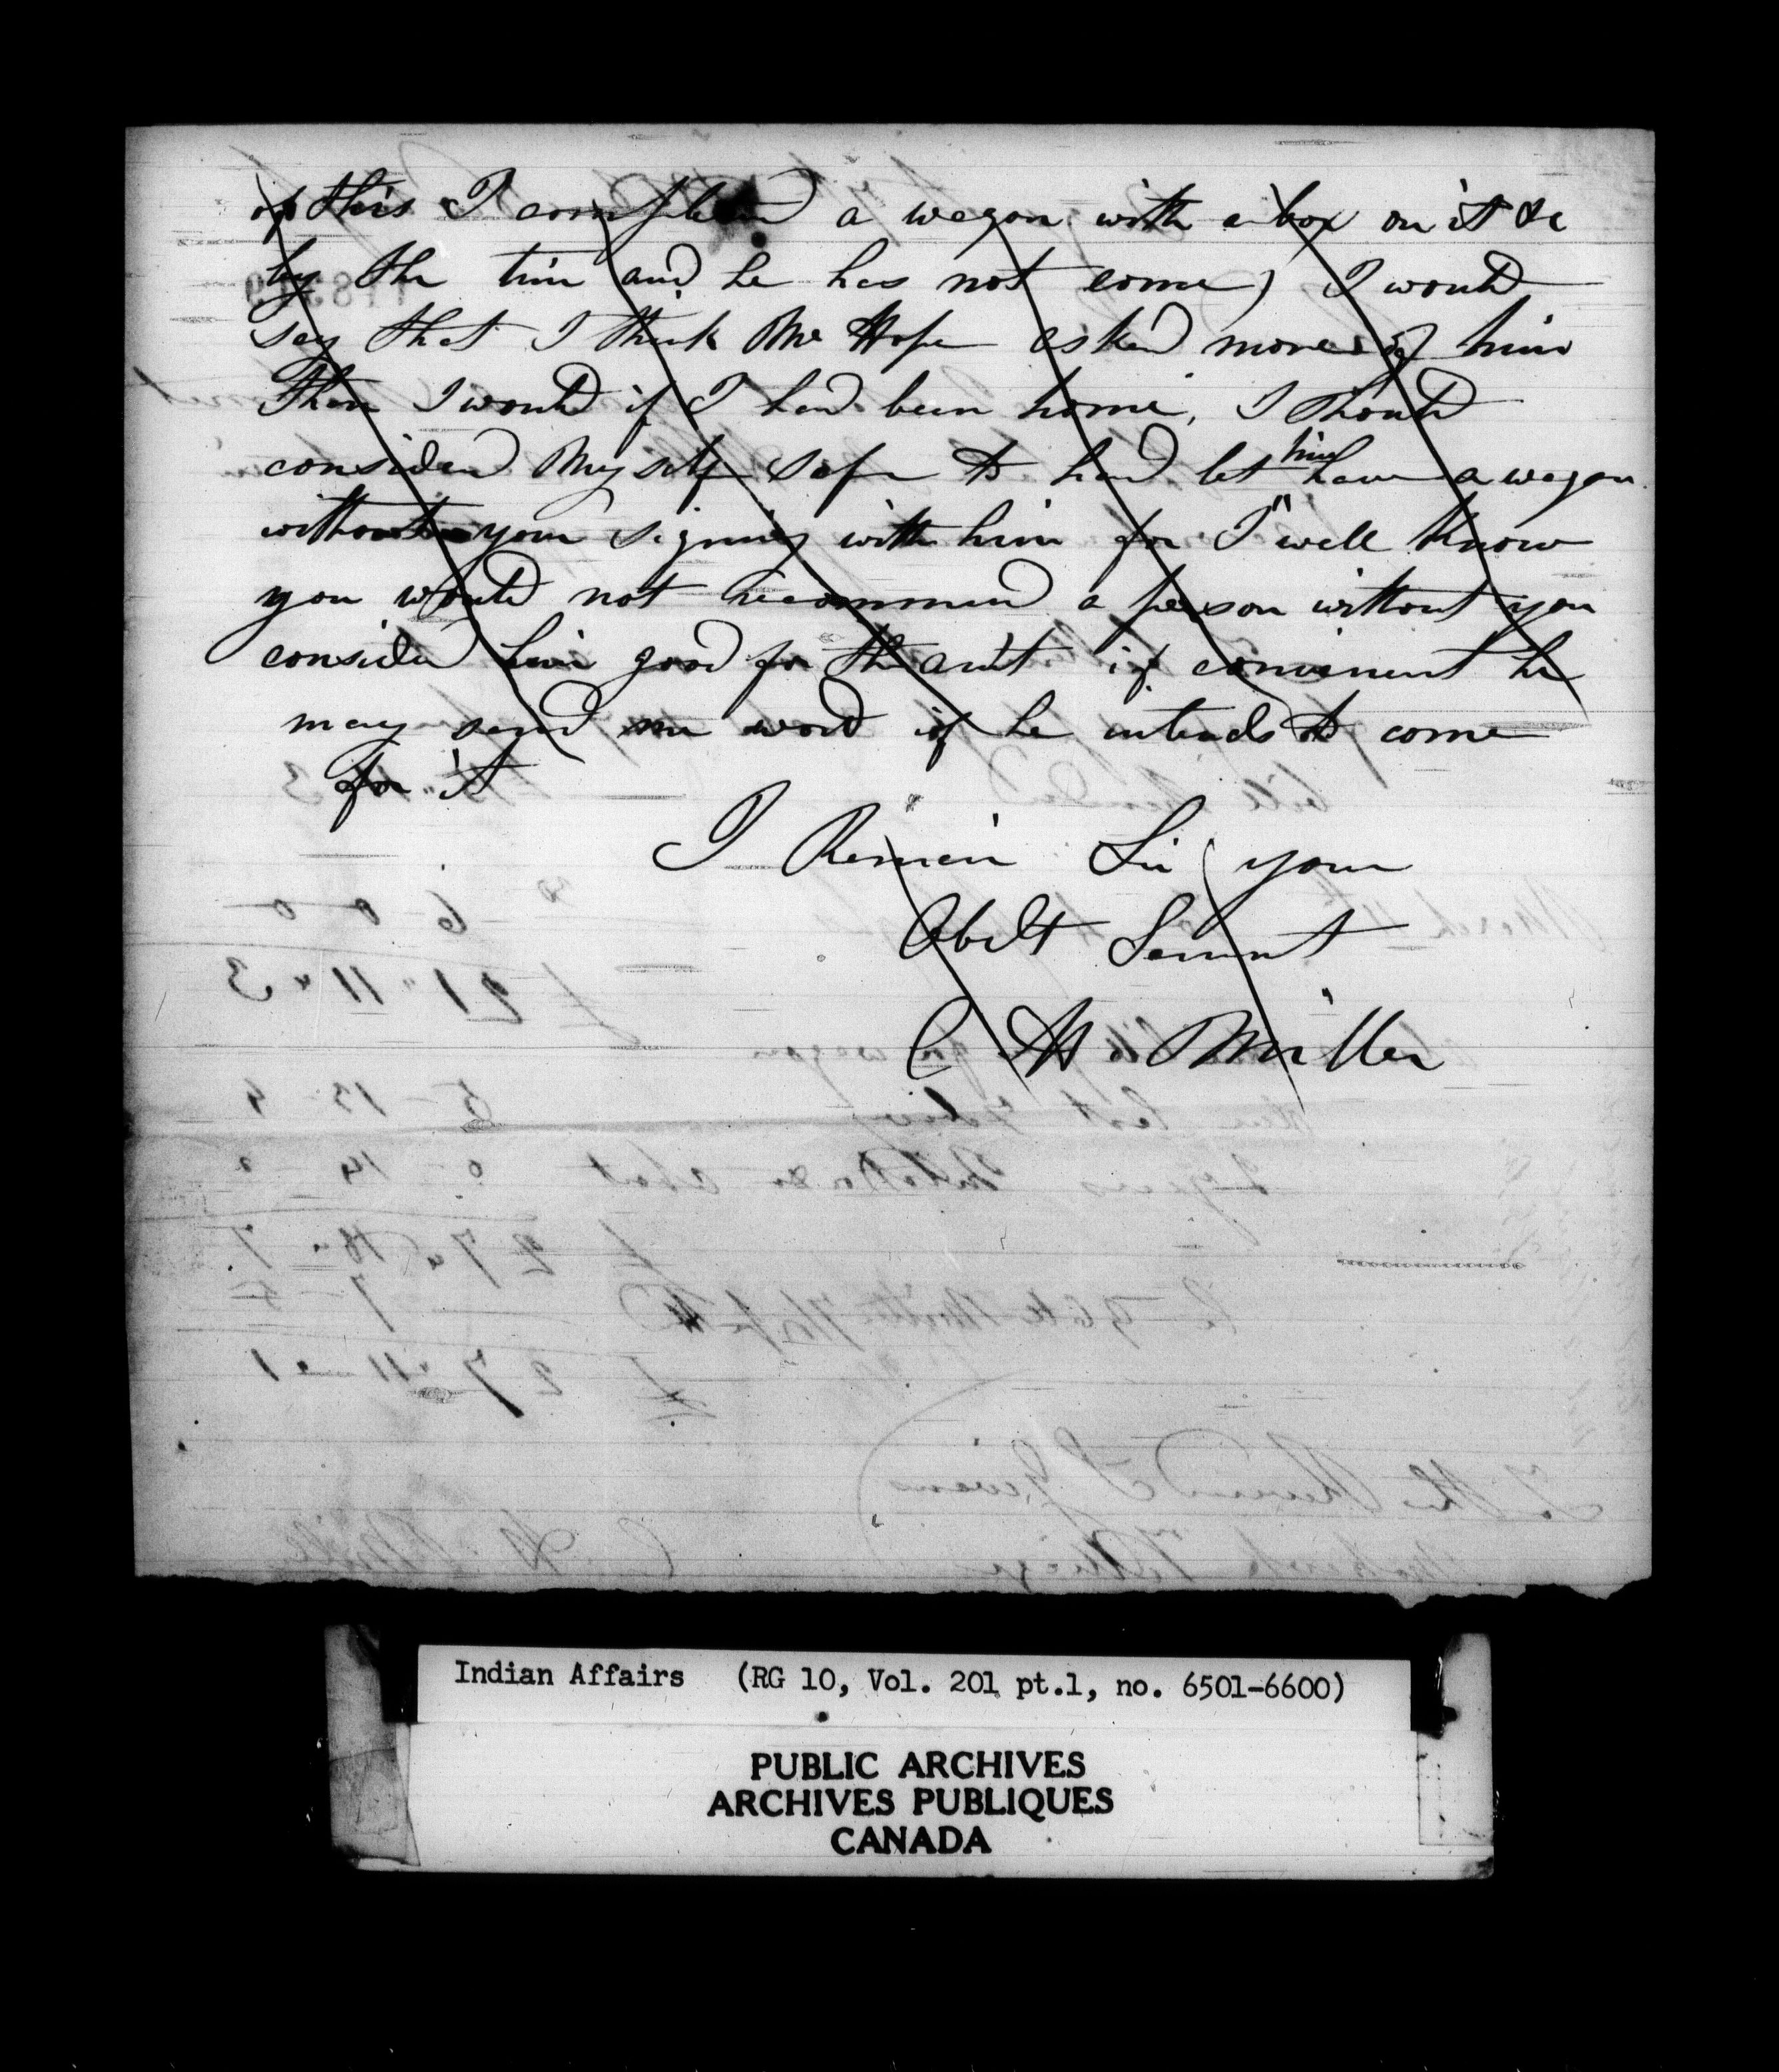 of this I completed a wagon with a box on it &c
by the time and he has not come) I would
say that I think Mr Hope asked more of him
than I would if I had been home, I should
considered my self safe to had let him have a wagon
without your signing with him for I well know
you would not recommend a person without you
consider him good for the amt if convinent he
may send me word if he intends to come
for it
I Remain Sir your
Obdt Servant
C H Miller
Indian Affairs (RG 10, Vol. 201 pt.1, no. 6501-6600)
PUBLIC ARCHIVES
ARCHIVES PUBLIQUES
CANADA